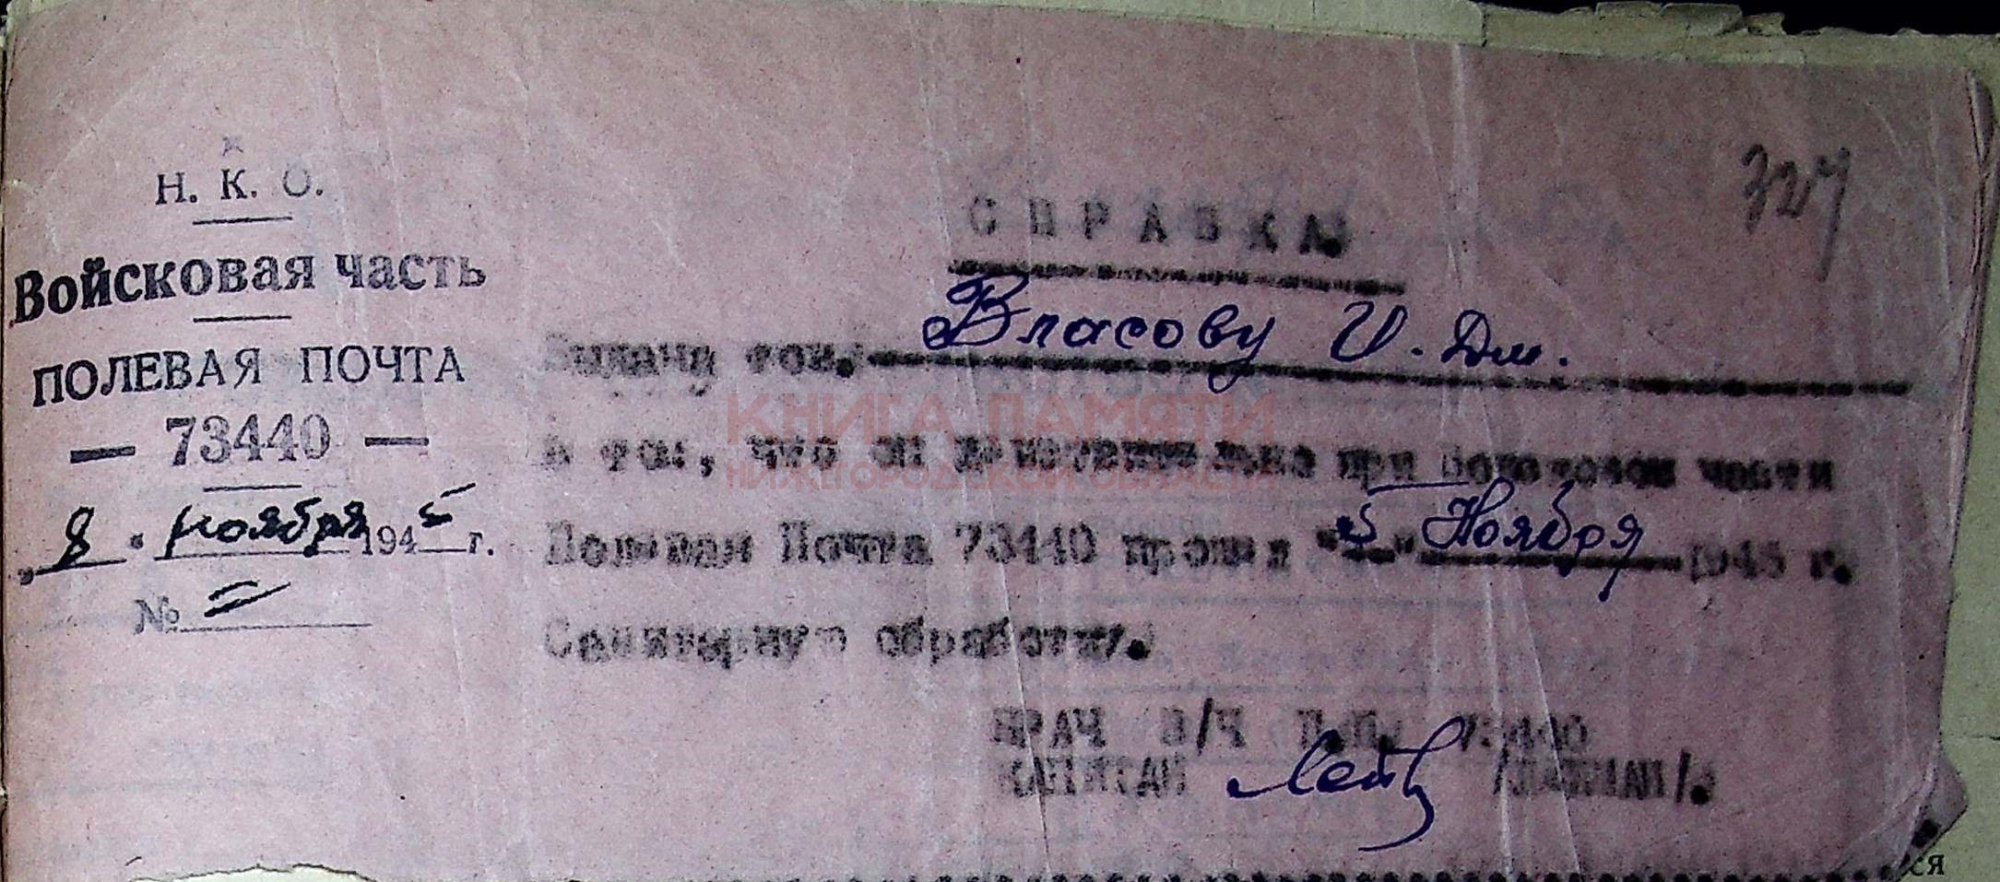 Н. К. О.
Войсковая часть
ПОЛЕВАЯ ПОЧТА
— 73440 —
„ 8 " ноября 1945 г.
№ =
327
СПРАВКА.
Выдана тов. Власову И. Дм.
в том, что он действительно при Войсковой части
Полевая Почта 73440 прошел "5" Ноября 1945 г.
Санитарную обработку.
ВРАЧ В/Ч П.П. 73440
КАПИТАН
КНИГА ПАМЯТИ
НИЖЕГОРОДСКОЙ ОБЛАСТИ
ся